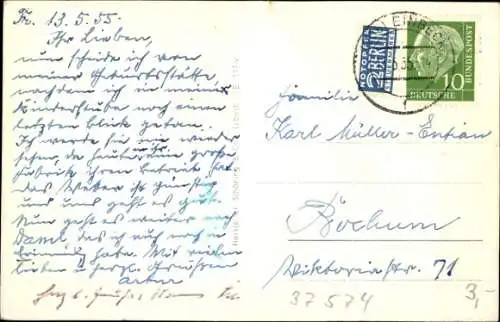 Fr. 13.5.55.
Ihr Lieben,
nun scheide ich von
meiner Geburtsstätte,
nachdem ich in meine
Kinderstube noch einen
letzten Blick getan.
Ich werde sie nie wieder
sehen, da heute eine große
Fabrik ihren Betrieb hat
das Wetter ist günstig
und uns geht es gut.
Nun geht es weiter nach
Dassel, das ich auch noch in
Erinnerung habe. Mit vielen
lieben u herzl. Grüßen
Artur
NOTOPFER
2 BERLIN
STEUERMARKE
EINBECK
10
DEUTSCHE
BUNDESPOST
Familie
Karl Müller-Entian
Bochum
Viktoriastr. 71
37574
3,-